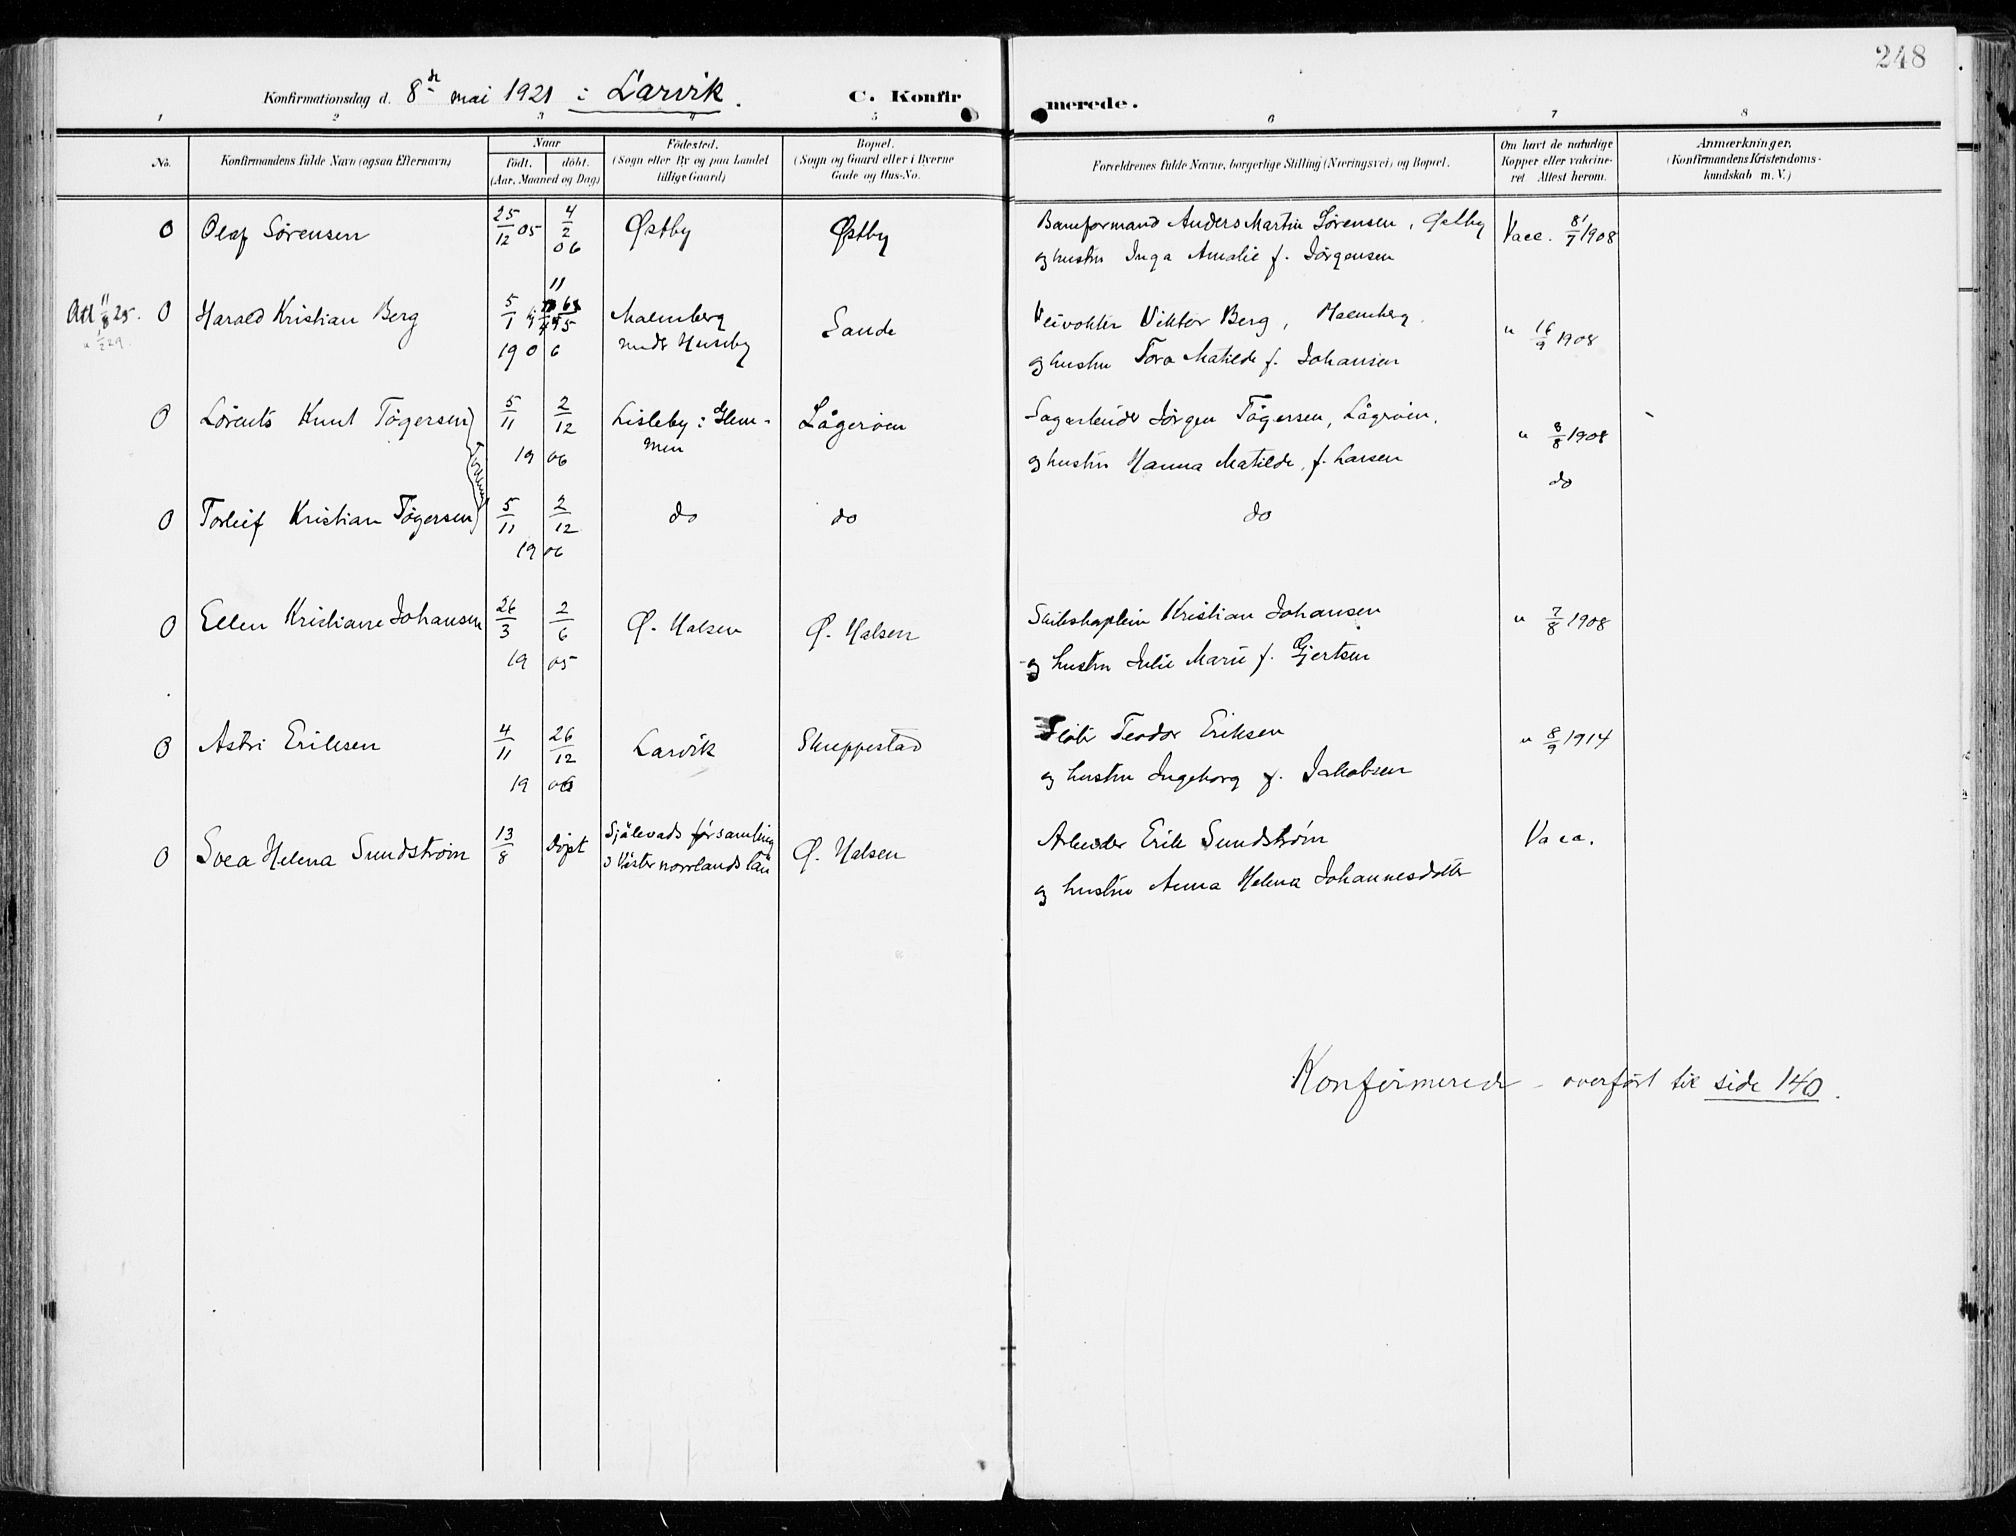 248
Konfirmationsdag d. 8de mai 1921 i Larvik. C. Konfirmerede.
1 2 3 4 5 6 7 8
No. Konfirmandens fulde Navn (ogsaa Efternavn) Naar født. døbt. (Aar, Maaned og Dag) Fødested. (Sogn eller By og paa Landet tillige Gaard) Bopæl. (Sogn og Gaard eller i Byerne Gade og Hus-No. Forældrenes fulde Navne, borgerlige Stilling (Næringsvei) og Bopæl. Om havt de naturlige Kopper eller vakcineret Attest herom. Anmærkninger, (Konfirmandens Kristendomskundskab m. V.)
O Olaf Sørensen 25/12 05 4/2 06 Østby Østby Baneformand Anders Martin Sørensen, Østby Vacc. 8/7 1908
og hustru Inga Amalie f. Jørgensen
Att 11/8 25. O Harald Kristian Berg 5/1 1906 Malmberg Sande Veivokter Viktor Berg, Malmberg. " 16/9 1908
" 1/2 29. under Huseby og hustru Tora Matilde f. Johansen
O Lorents Knut Tøgersen 5/11 2/12 1906 Lisleby i Glem- Lågerøen Sagarbeider Jørgen Tøgersen, Lågerøen. " 8/8 1908
men og hustru Hanna Matilde, f. Larsen
O Torleif Kristian Tøgersen 5/11 2/12 1906 do do do do
O Ellen Kristiane Johansen 26/3 2/6 1905 Ø. Halsen Ø. Halsen Skibskaptein Kristian Johansen " 7/8 1908
og hustru Julie Marie f. Gjertsen
O Astri Eriksen 4/11 26/12 1906 Larvik Skreppestad Teodor Eriksen " 8/9 1914
og hustru Ingeborg f. Jakobsen
O Svea Helena Sundstrøm 13/8 døpt Själevads församling Ø. Halsen Arbeider Erik Sundstrøm Vacc.
i Västernorrlands län og hustru Anna Helena Johannesdotter
Konfirmerede - overført til side 140.